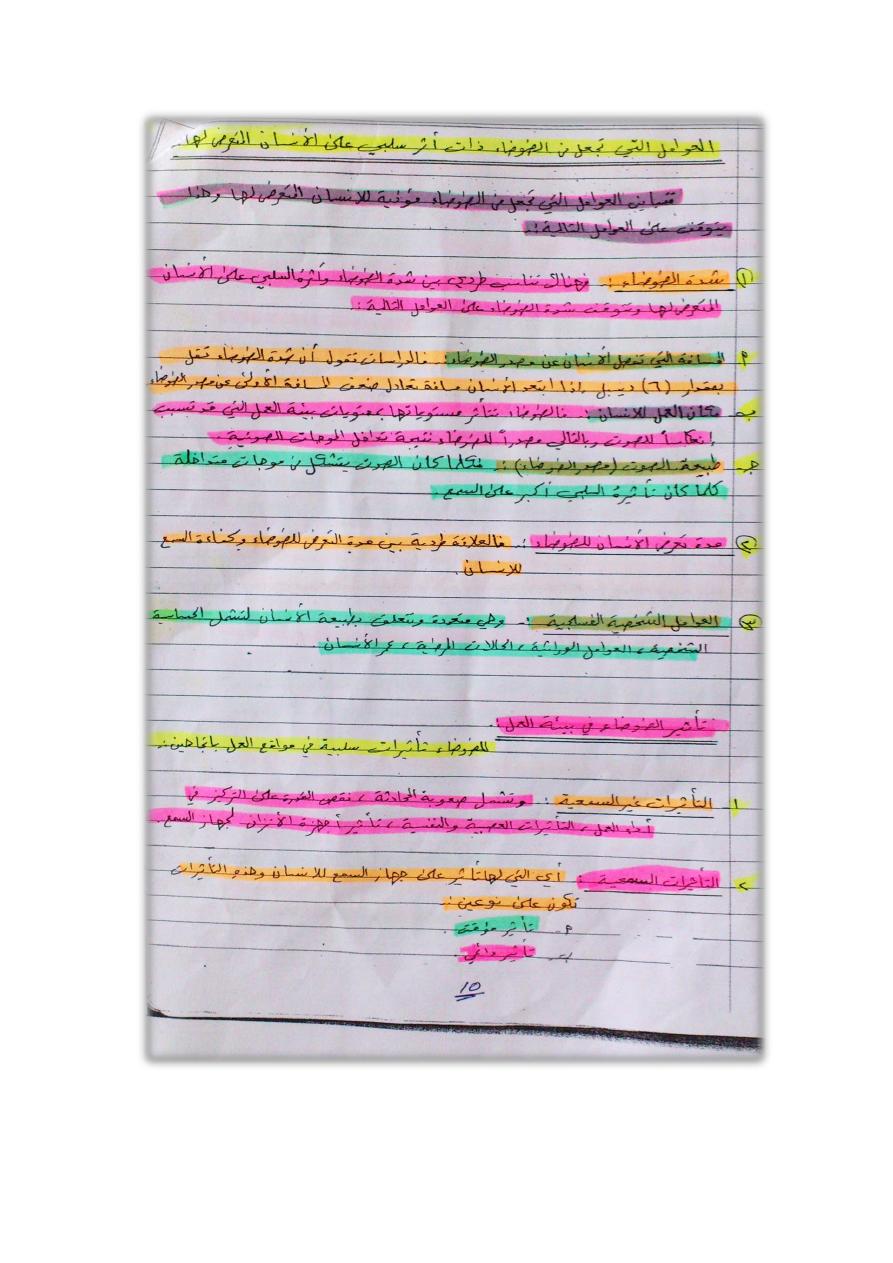 العوامل التي تجعل من الضوضاء ذات أثر سلبي على الأنسان المتعرض لها.
تتباين العوامل التي تجعل من الضوضاء مؤذية للإنسان المتعرض لها وهذا
يتوقف على العوامل التالية :.
١ شدة الضوضاء :. فهناك تناسب طردي بين شدة الضوضاء وأثرها السلبي على الأنسان
المتعرض لها وتتوقف شدة الضوضاء على العوامل التالية :
م المسافة التي تفصل الأنسان عن مصدر الضوضاء: فالدراسات تقول أن شدة الضوضاء تقل
بمقدار (٦) ديسبل إذا ابتعد الأنسان مسافة تعادل ضعف المسافة الأولى عن مصدر الضوضاء
ب مكان العمل للانسان : فالضوضاء تتأثر مستوياتها بمحتويات بيئة العمل التي قد تسبب
إنعكاساً للصوت وبالتالي مصدراً للضوضاء نتيجة تداخل الموجات الصوتية.
جـ طبيعة الصوت (مصدر الضوضاء) : فكلما كان الصوت يتشكل من موجات متداخلة
كلما كان تأثيرة السلبي أكبر على السمع.
٢ مدة تعرض الأنسان للضوضاء :. فالعلاقة طردية بين مدة التعرض للضوضاء وكفاءة السمع
للانسان.
٣ العوامل الشخصية الفسلجية :. وهي متعددة وتتعلق بطبيعة الأنسان لتشمل الحساسية
الشخصية ، العوامل الوراثية ، الحالات المرضية ، عمر الأنسان
تأثير الضوضاء في بيئة العمل :
للضوضاء تأثيرات سلبية في مواقع العمل باتجاهين :.
١ التأثيرات غير السمعية : وتشمل صعوبة المحادثة ، نقص القدرة على التركيز في
أداء العمل ، التأثيرات العصبية والنفسية ، تأثير أجهزة الأتزان لجهاز السمع.
٢ التأثيرات السمعية : أي التي لها تأثير على جهاز السمع للانسان وهذه التأثيرات
تكون على نوعين :
م- تأثير مؤقت.
ب- تأثير دائمي.
10